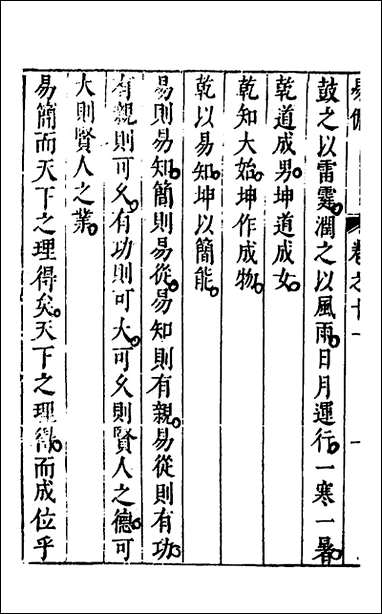 卷之十一 一
鼓之以雷霆。潤之以風雨。日月運行。一寒一暑。
乾道成男。坤道成女。
乾知大始。坤作成物。
乾以易知。坤以簡能。
易則易知。簡則易從。易知則有親。易從則有功。
有親則可久。有功則可大。可久則賢人之德。可
大則賢人之業。
易簡而天下之理得矣。天下之理得。而成位乎